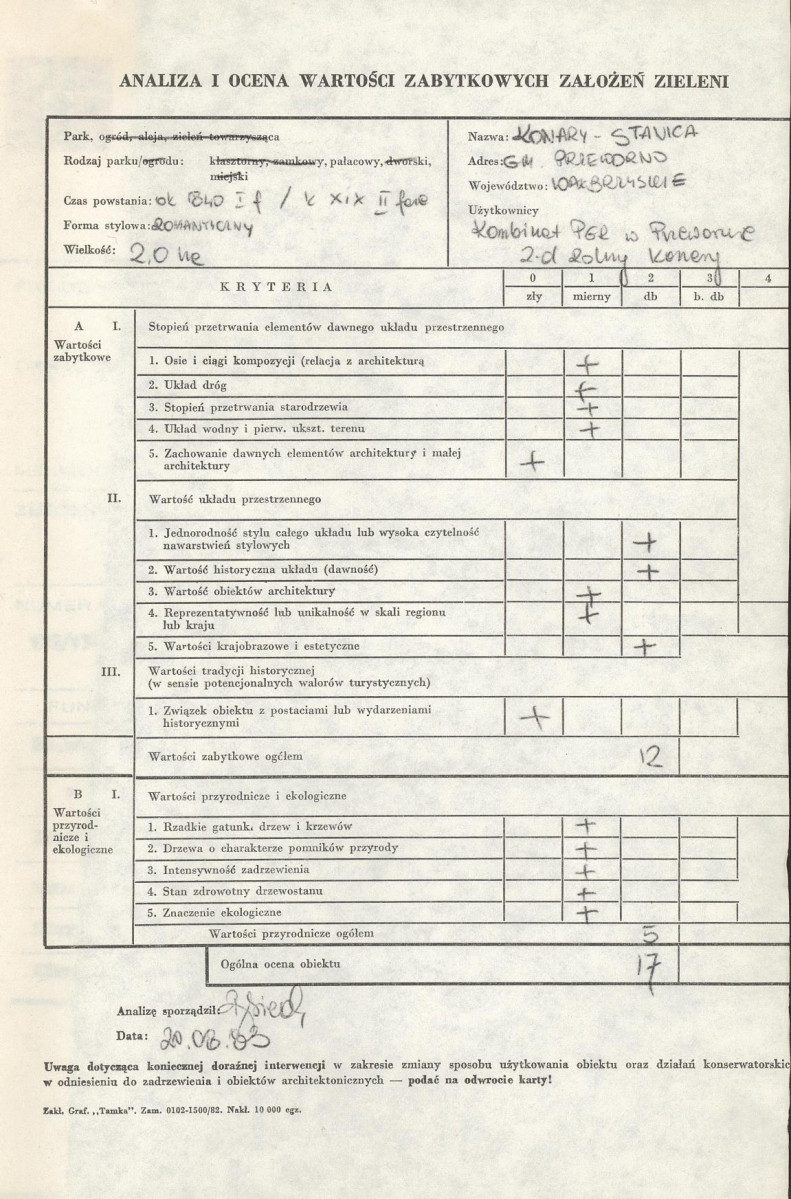 ANALIZA I OCENA WARTOŚCI ZABYTKOWYCH ZAŁOŻEŃ ZIELENI
Park, ogród, aleja, zieleń towarzysząca
Rodzaj parku/ogrodu: klasztorny, zamkowy, pałacowy, dworski,
miejski
Czas powstania: ok 1840 I f / k XIX II faza
Forma stylowa: ROMANTYCZNY
Wielkość: 2,0 ha
Nazwa: KONARY - STAWICA
Adres: GM. PRZEWORNO
Województwo: WAŁBRZYSKIE
Użytkownicy
Kombinat PGR w Przewornie
Z-d Rolny Konary
KRYTERIA
0 1 2 3 4
zły mierny db b. db
A I. Stopień przetrwania elementów dawnego układu przestrzennego
Wartości
zabytkowe
1. Osie i ciągi kompozycji (relacja z architekturą +
2. Układ dróg +
3. Stopień przetrwania starodrzewia +
4. Układ wodny i pierw. ukszt. terenu +
5. Zachowanie dawnych elementów architektury i małej
architektury +
II. Wartość układu przestrzennego
1. Jednorodność stylu całego układu lub wysoka czytelność
nawarstwień stylowych +
2. Wartość historyczna układu (dawność) +
3. Wartość obiektów architektury +
4. Reprezentatywność lub unikalność w skali regionu
lub kraju +
5. Wartości krajobrazowe i estetyczne +
III. Wartości tradycji historycznej
(w sensie potencjonalnych walorów turystycznych)
1. Związek obiektu z postaciami lub wydarzeniami
historycznymi +
Wartości zabytkowe ogółem 12
B I. Wartości przyrodnicze i ekologiczne
Wartości
przyrod-
nicze i
ekologiczne
1. Rzadkie gatunki drzew i krzewów +
2. Drzewa o charakterze pomników przyrody +
3. Intensywność zadrzewienia +
4. Stan zdrowotny drzewostanu +
5. Znaczenie ekologiczne +
Wartości przyrodnicze ogółem 5
Ogólna ocena obiektu 17
Analizę sporządził:
Data: 20.08.83
Uwaga dotycząca koniecznej doraźnej interwencji w zakresie zmiany sposobu użytkowania obiektu oraz działań konserwatorskic
w odniesieniu do zadrzewienia i obiektów architektonicznych — podać na odwrocie karty!
Zakł. Graf. „Tamka". Zam. 0102-1500/82. Nakł. 10 000 egz.